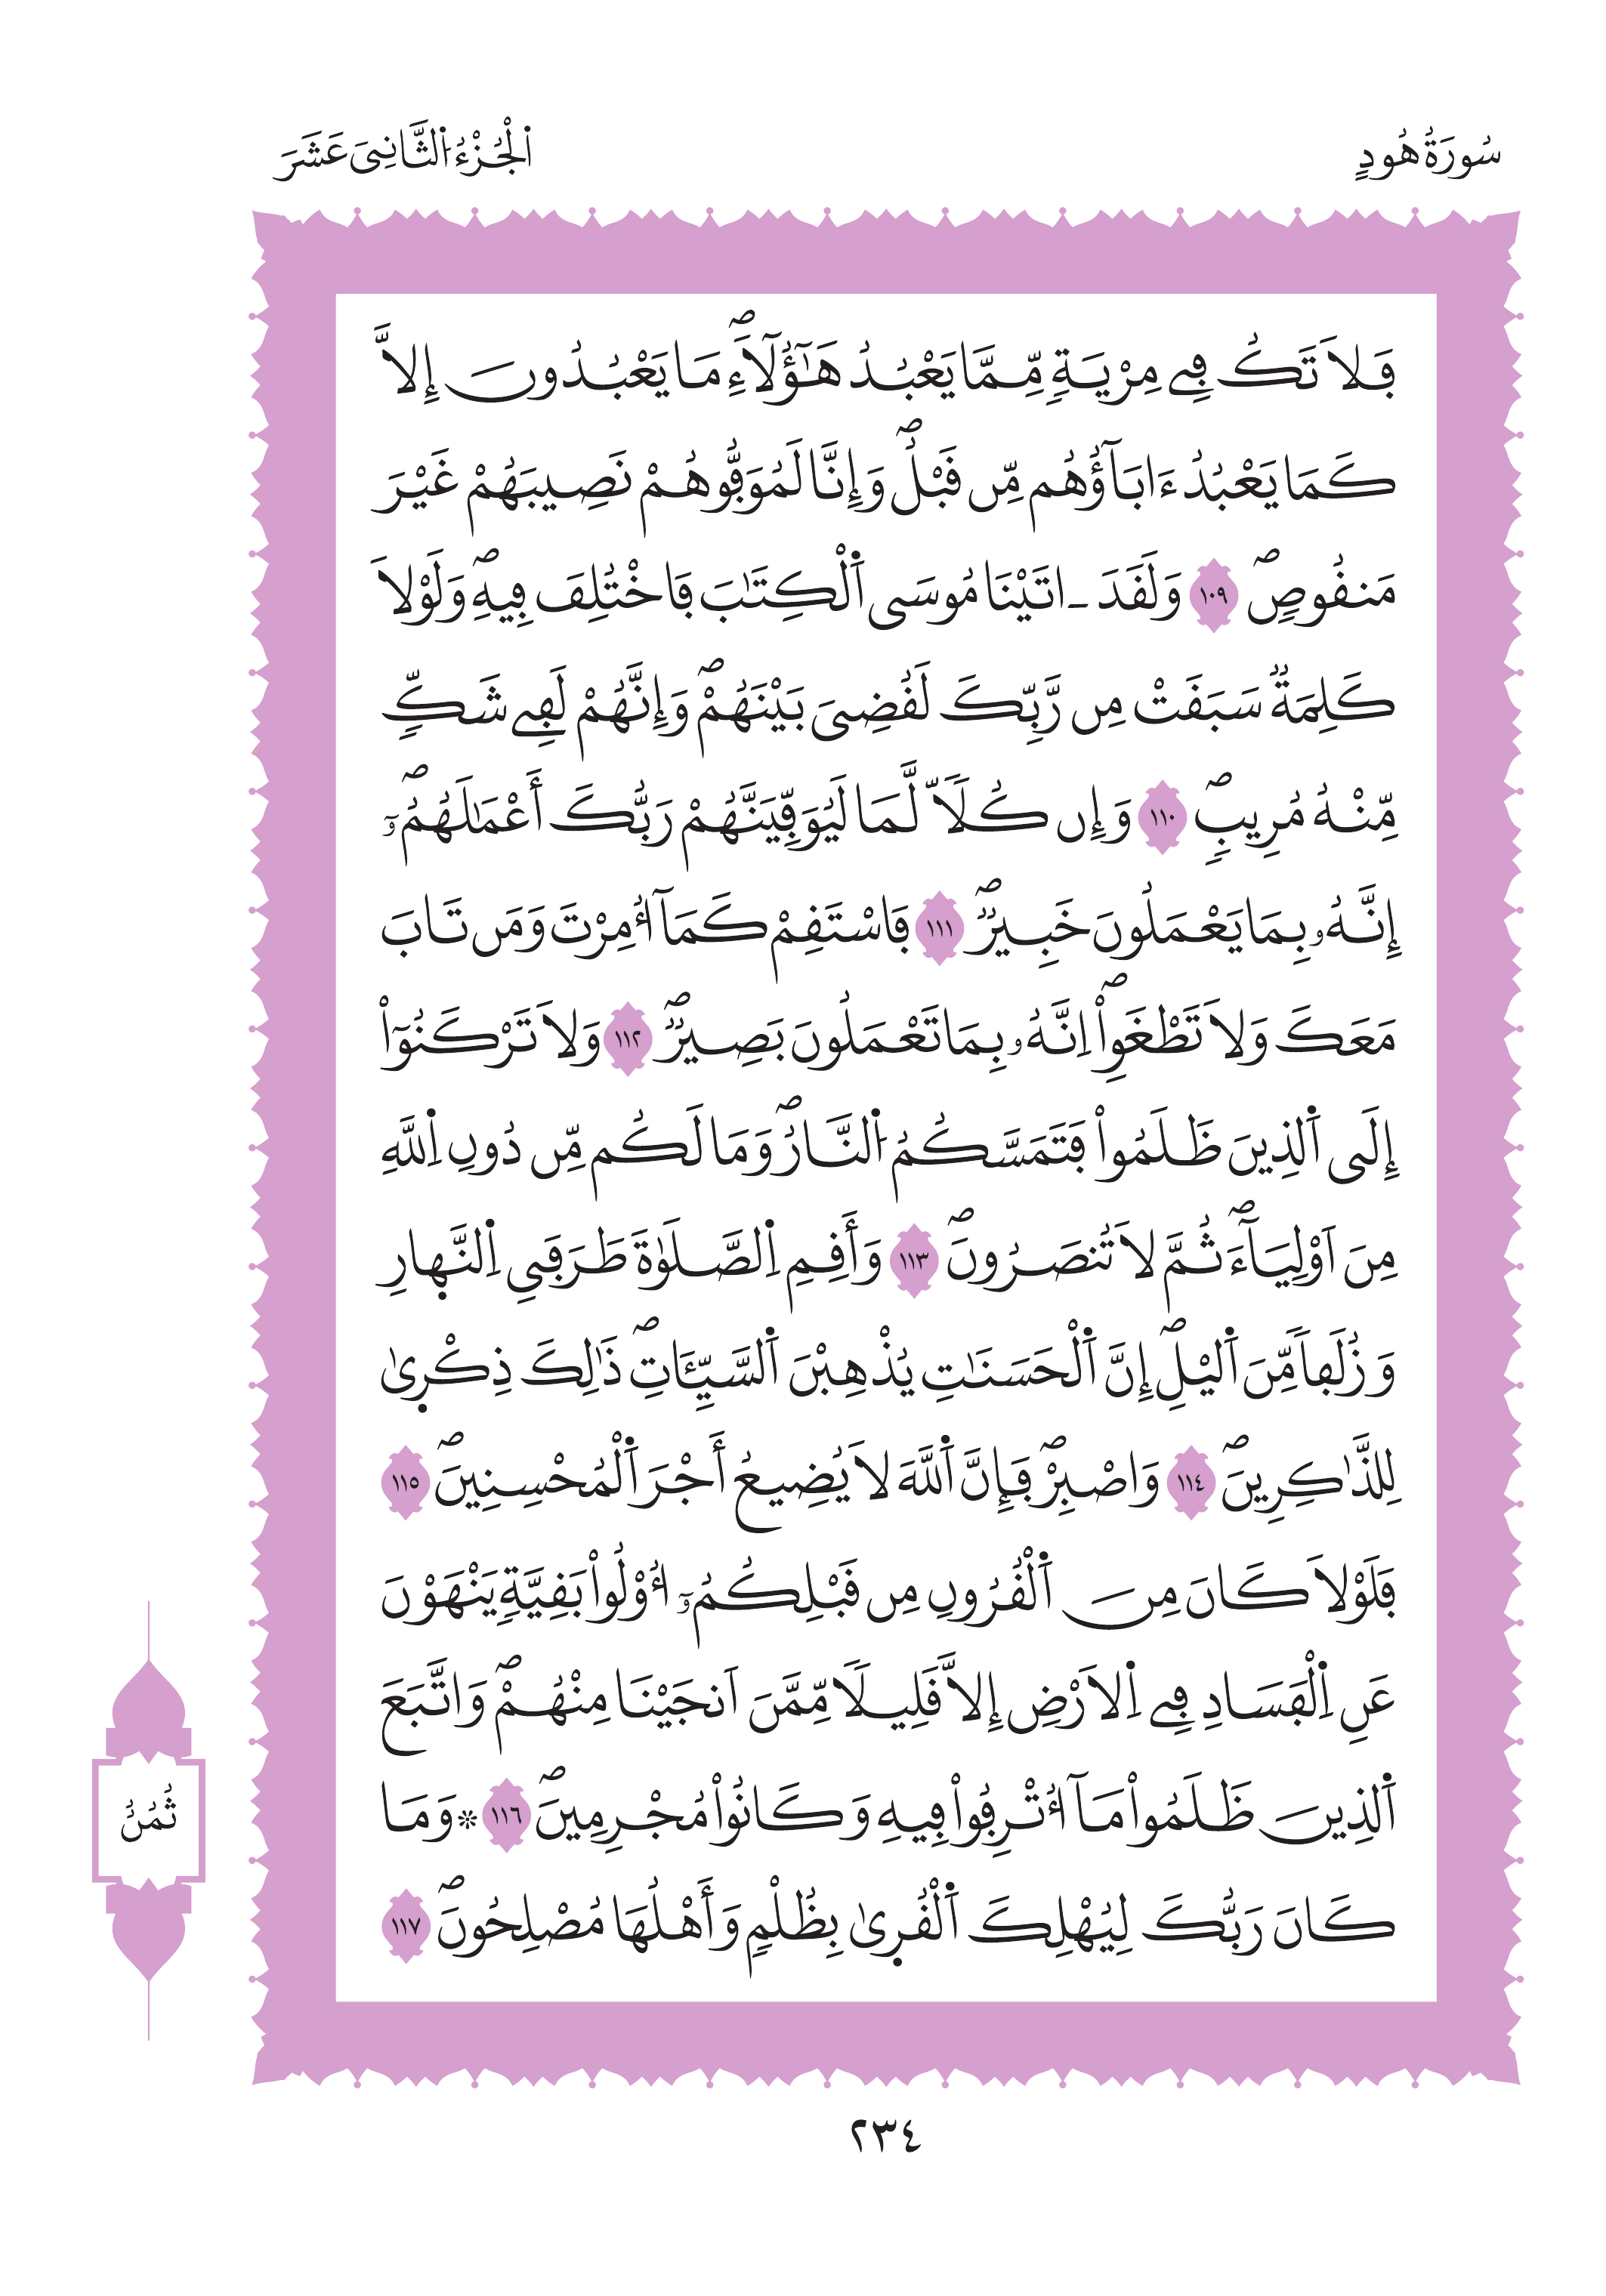 سُورَةُ هُودٍ
اَ۬لْجُزْءُ اُ۬لثَّانِيَ عَشَرَ
فَلَا تَكُ فِے مِرْيَةٖ مِّمَّا يَعْبُدُ هَٰٓؤُلَآءِۖ مَا يَعْبُدُونَ إِلَّا
كَمَا يَعْبُدُ ءَابَآؤُهُم مِّن قَبْلُۖ وَإِنَّا لَمُوَفُّوهُمْ نَصِيبَهُمْ غَيْرَ
مَنقُوصٖۖ ١٠٩ وَلَقَدَ ـاتَيْنَا مُوسَى اَ۬لْكِتَٰبَ فَاخْتُلِفَ فِيهِۖ وَلَوْلَا
كَلِمَةٞ سَبَقَتْ مِن رَّبِّكَ لَقُضِيَ بَيْنَهُمْۖ وَإِنَّهُمْ لَفِے شَكّٖ
مِّنْهُ مُرِيبٖۖ ١١٠ وَإِن كُلّاٗ لَّمَا لَيُوَفِّيَنَّهُمْ رَبُّكَ أَعْمَٰلَهُمُۥٓۖ
إِنَّهُۥ بِمَا يَعْمَلُونَ خَبِيرٞۖ ١١١ فَاسْتَقِمْ كَمَآ أُمِرْتَ وَمَن تَابَ
مَعَكَ وَلَا تَطْغَوِاْۖ اِنَّهُۥ بِمَا تَعْمَلُونَ بَصِيرٞۖ ١١٢ وَلَا تَرْكَنُوٓاْ
إِلَى اَ۬لذِينَ ظَلَمُواْ فَتَمَسَّكُمُ اُ۬لنَّارُۖ وَمَا لَكُم مِّن دُونِ اِ۬للَّهِ
مِنَ اَوْلِيَآءَۖ ثُمَّ لَا تُنصَرُونَۖ ١١٣ وَأَقِمِ اِ۬لصَّلَوٰةَ طَرَفَيِ اِ۬لنَّه۪ارِ
وَزُلَفاٗ مِّنَ اَ۬ليْلِۖ إِنَّ اَ۬لْحَسَنَٰتِ يُذْهِبْنَ اَ۬لسَّيِّـَٔاتِۖ ذَٰلِكَ ذِكْر۪يٰ
لِلذَّٰكِرِينَۖ ١١٤ وَاصْبِرْۖ فَإِنَّ اَ۬للَّهَ لَا يُضِيعُ أَجْرَ اَ۬لْمُحْسِنِينَۖ ١١٥
فَلَوْلَا كَانَ مِنَ اَ۬لْقُرُونِ مِن قَبْلِكُمُۥٓ أُوْلُواْ بَقِيَّةٖ يَنْهَوْنَ
عَنِ اِ۬لْفَسَادِ فِے اِ۬لَارْضِ إِلَّا قَلِيلاٗ مِّمَّنَ اَنجَيْنَا مِنْهُمْۖ وَاتَّبَعَ
اَ۬لذِينَ ظَلَمُواْ مَآ أُتْرِفُواْ فِيهِ وَكَانُواْ مُجْرِمِينَۖ ١١٦ * وَمَا
كَانَ رَبُّكَ لِيُهْلِكَ اَ۬لْقُر۪يٰ بِظُلْمٖ وَأَهْلُهَا مُصْلِحُونَۖ ١١٧
ثُمُنُ
٢٣٤